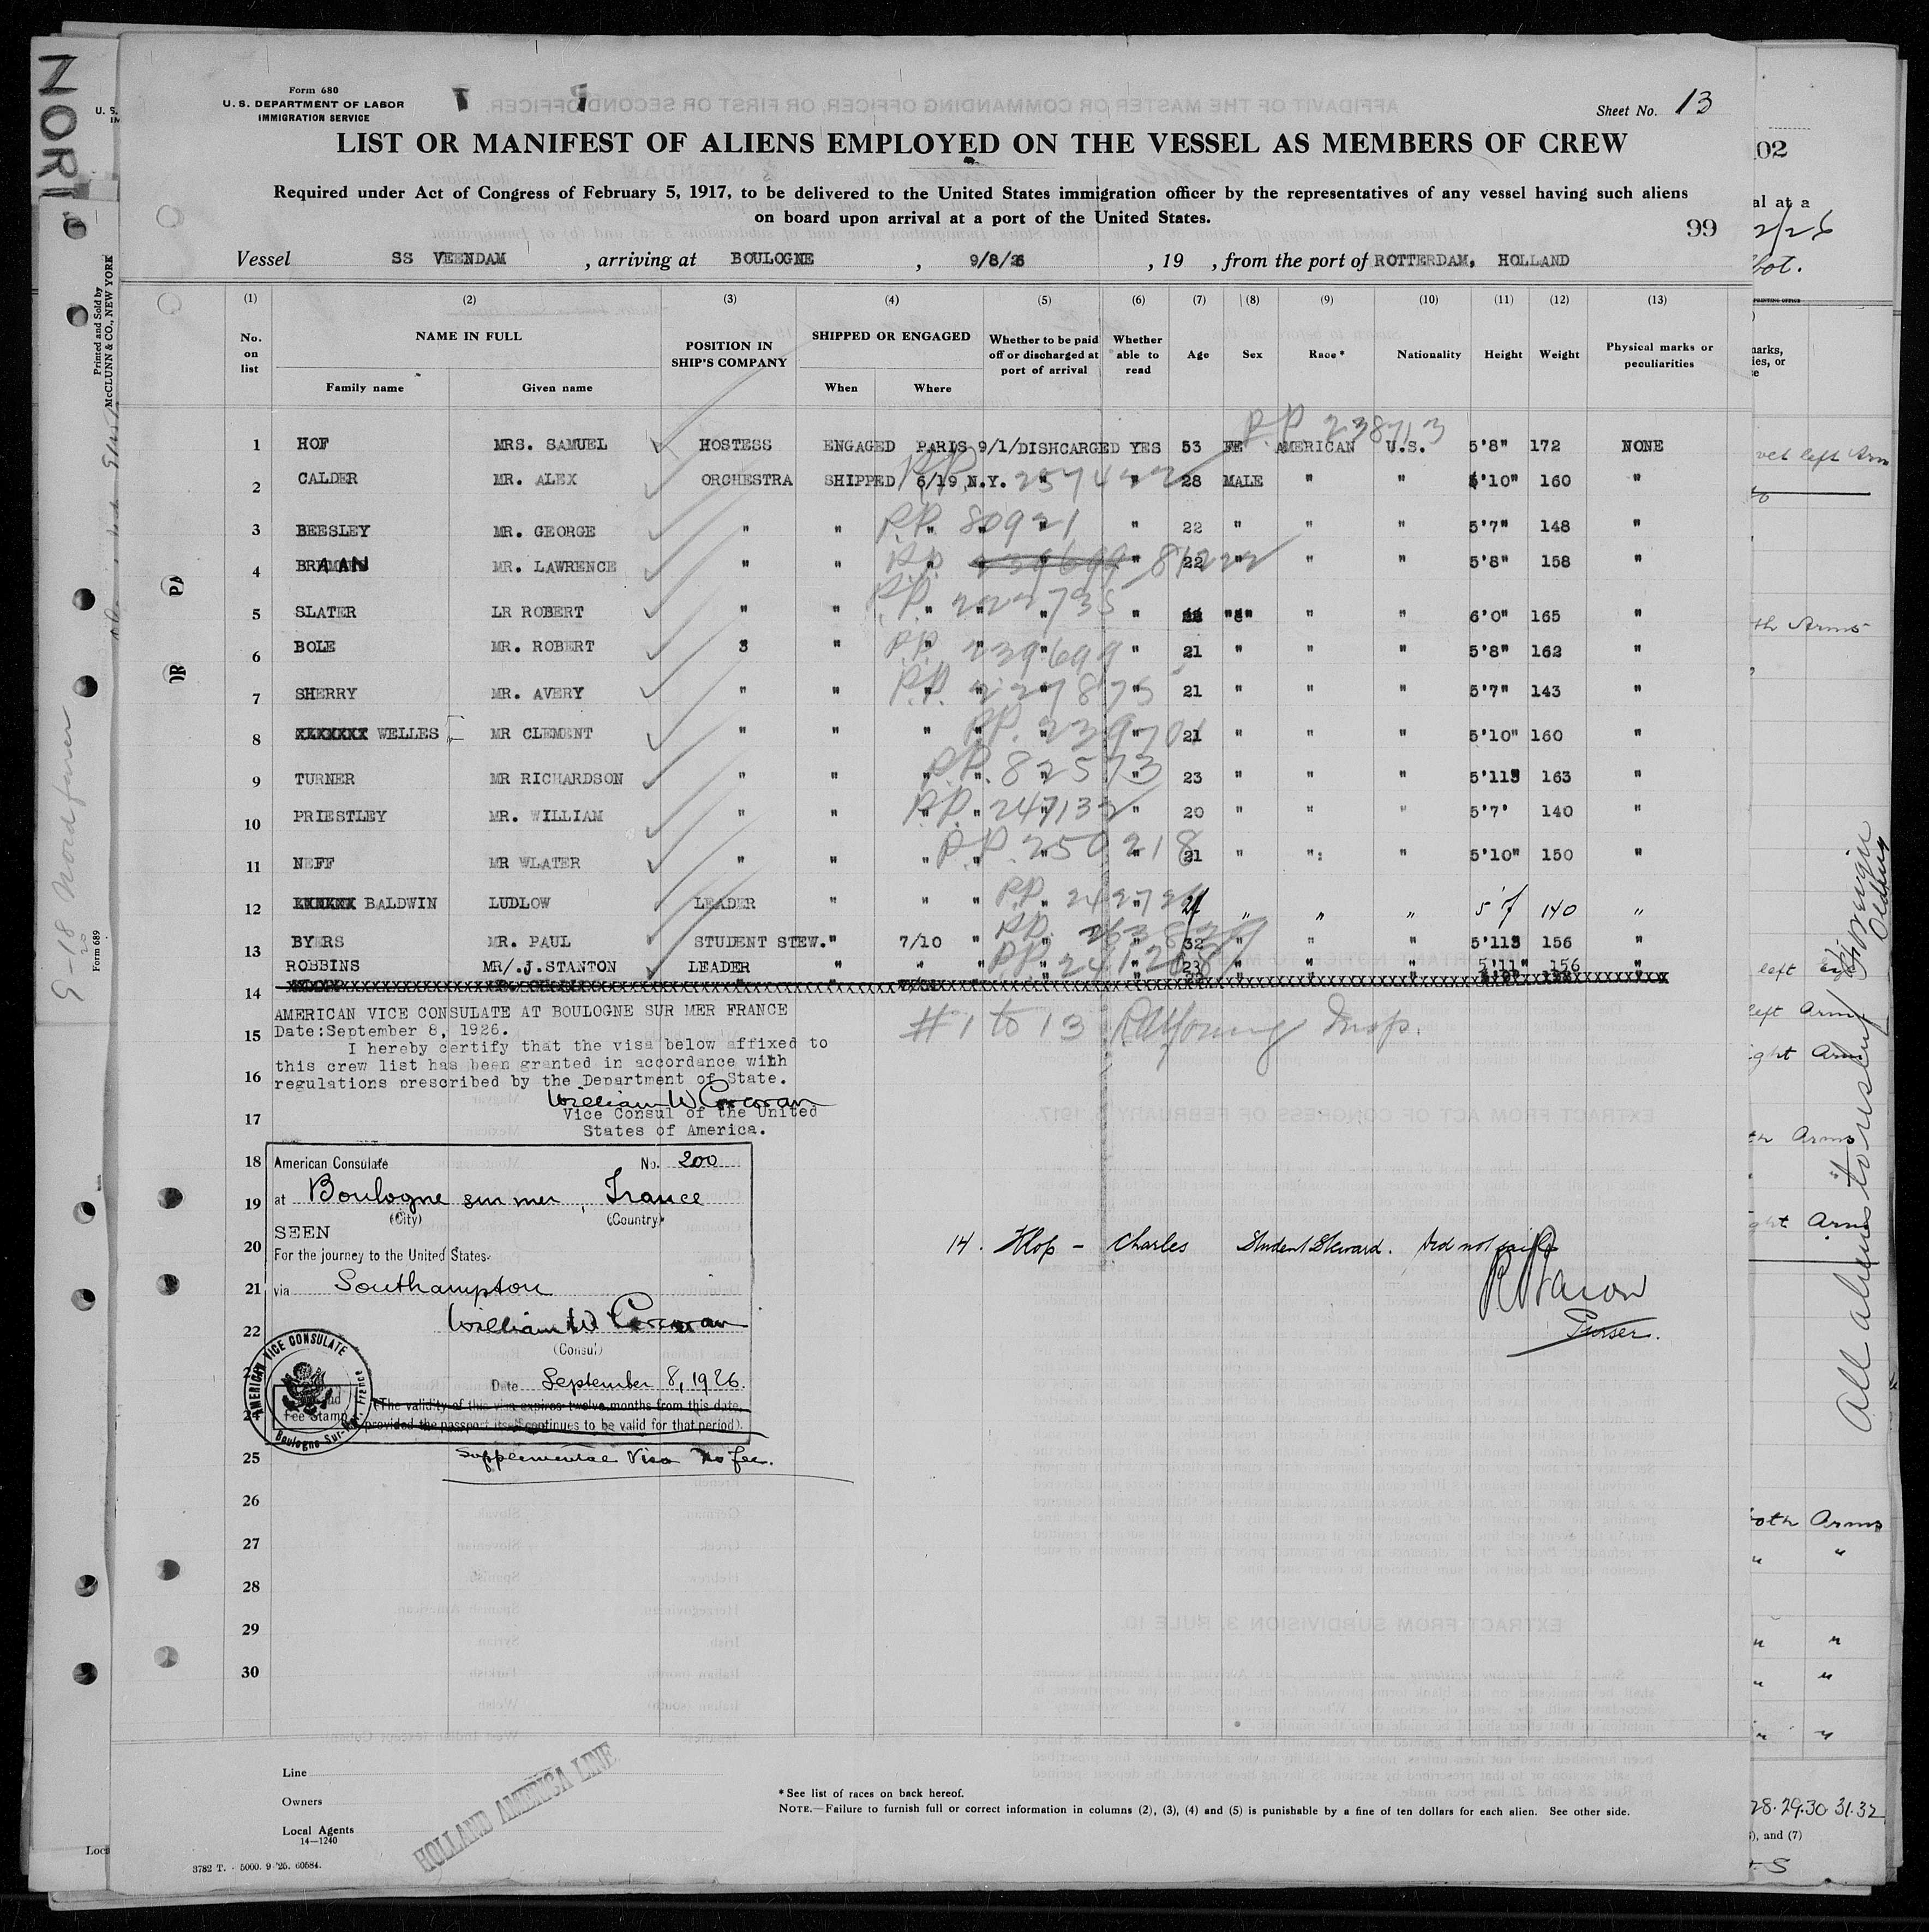 NORT
Form 680
U. S. DEPARTMENT OF LABOR
IMMIGRATION SERVICE
Sheet No. 13
LIST OR MANIFEST OF ALIENS EMPLOYED ON THE VESSEL AS MEMBERS OF CREW
Required under Act of Congress of February 5, 1917, to be delivered to the United States immigration officer by the representatives of any vessel having such aliens
on board upon arrival at a port of the United States.
99
Vessel SS VEENDAM , arriving at BOULOGNE , 9/8/26 , 19 , from the port of ROTTERDAM, HOLLAND
(1) (2) (3) (4) (5) (6) (7) (8) (9) (10) (11) (12) (13)
No. on list NAME IN FULL Family name Given name POSITION IN SHIP'S COMPANY SHIPPED OR ENGAGED When Where Whether to be paid off or discharged at port of arrival Whether able to read Age Sex Race* Nationality Height Weight Physical marks or peculiarities
P.P. 238713
1 HOF MRS. SAMUEL HOSTESS ENGAGED PARIS 9/1/DISHCARGED YES 53 FE AMERICAN U.S. 5'8" 172 NONE
2 CALDER MR. ALEX ORCHESTRA SHIPPED 6/19 N.Y. P.P. 2574 28 MALE " " 5'10" 160 "
3 BEESLEY MR. GEORGE " " " " P.P. 80921 " " 22 " " " 5'7" 148 "
4 BRAAN MR. LAWRENCE " " " P.P. 239699 81222 " 22 " " " 5'8" 158 "
5 SLATER LR ROBERT " " " " P.P. 222735 " " " " " 6'0" 165 "
6 BOLE MR. ROBERT 3 " " " P.P. 239699 " " 21 " " " 5'8" 162 "
7 SHERRY MR. AVERY " " " " P.P. 227875 " " 21 " " " 5'7" 143 "
8 WELLES MR CLEMENT " " " " P.P. 239701 " " 21 " " " 5'10" 160 "
9 TURNER MR RICHARDSON " " " " P.P. 82573 " " 23 " " " 5'113 163 "
10 PRIESTLEY MR. WILLIAM " " " " P.P. 247132 " " 20 " " " 5'7' 140 "
11 NEFF MR WLATER " " " " P.P. 250218 " " 21 " ": " 5'10" 150 "
12 BALDWIN LUDLOW LEADER " " " P.P. " " 21 " " " 5'7 140 "
13 BYERS MR. PAUL STUDENT STEW. " 7/10 " P.P. " " 32 " " " 5'113 156 "
ROBBINS MR/.J.STANTON LEADER " " " P.P. " " 23 " " " 5'11" 156 "
14
#1 to 13 RAYoung Insp.
AMERICAN VICE CONSULATE AT BOULOGNE SUR MER FRANCE
15 Date:September 8, 1926.
I hereby certify that the visa below affixed to
this crew list has been granted in accordance with
16 regulations prescribed by the Department of State.
William W Corcoran
17 Vice Consul of the United
States of America.
18 American Consulate No. 200
19 at Boulogne sur mer, France
(City) (Country)
SEEN
20 For the journey to the United States
14. Klop - Charles Student Steward. Did not sail
21 via Southampton
Purser.
22 William W Corcoran
(Consul)
23 Date September 8, 1926.
24 Fee Stamp
(The validity of this visa expires twelve months from this date,
provided the passport itself continues to be valid for that period).
AMERICAN VICE CONSULATE
Boulogne-Sur-Mer, France
25 Supplemental Visa No fee.
26
27
28
29
30
Line
Owners
Local Agents
14—1240
HOLLAND AMERICA LINE
* See list of races on back hereof.
NOTE.—Failure to furnish full or correct information in columns (2), (3), (4) and (5) is punishable by a fine of ten dollars for each alien. See other side.
3782 T. - 5000. 9 '25. 60584.
Printed and Sold by
McCLUNN & CO., NEW YORK
Form 689
02
al at a
2/26
left Arm
th Arms
left Arm
ight Arm
th Arms
ght Arm
both Arms
28.29.30.31.32
), and (7)